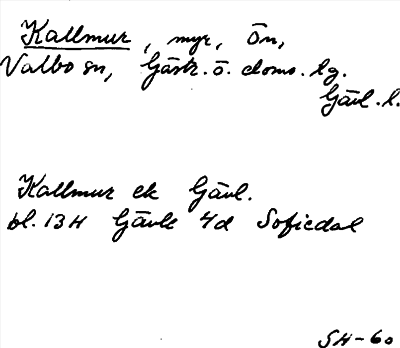 Kallmur, myr, Ön,
Valbo sn, Gästr. ö. doms. lg.
Gävl. l.
Kallmur ek Gävl.
bl. 13H Gävle 4d Sofiedal
SH-60